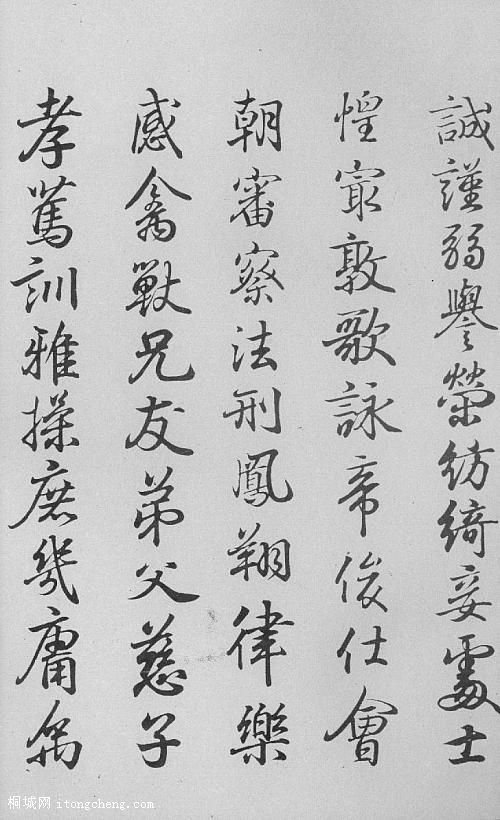 誠謹弱譽榮紡綺妾處士
惶㝡敦歌詠帝俊仕會
朝審察法刑鳳翔律樂
感禽獸兄友弟父慈子
孝篤訓雅操庶幾庸
桐城网 itongcheng.com